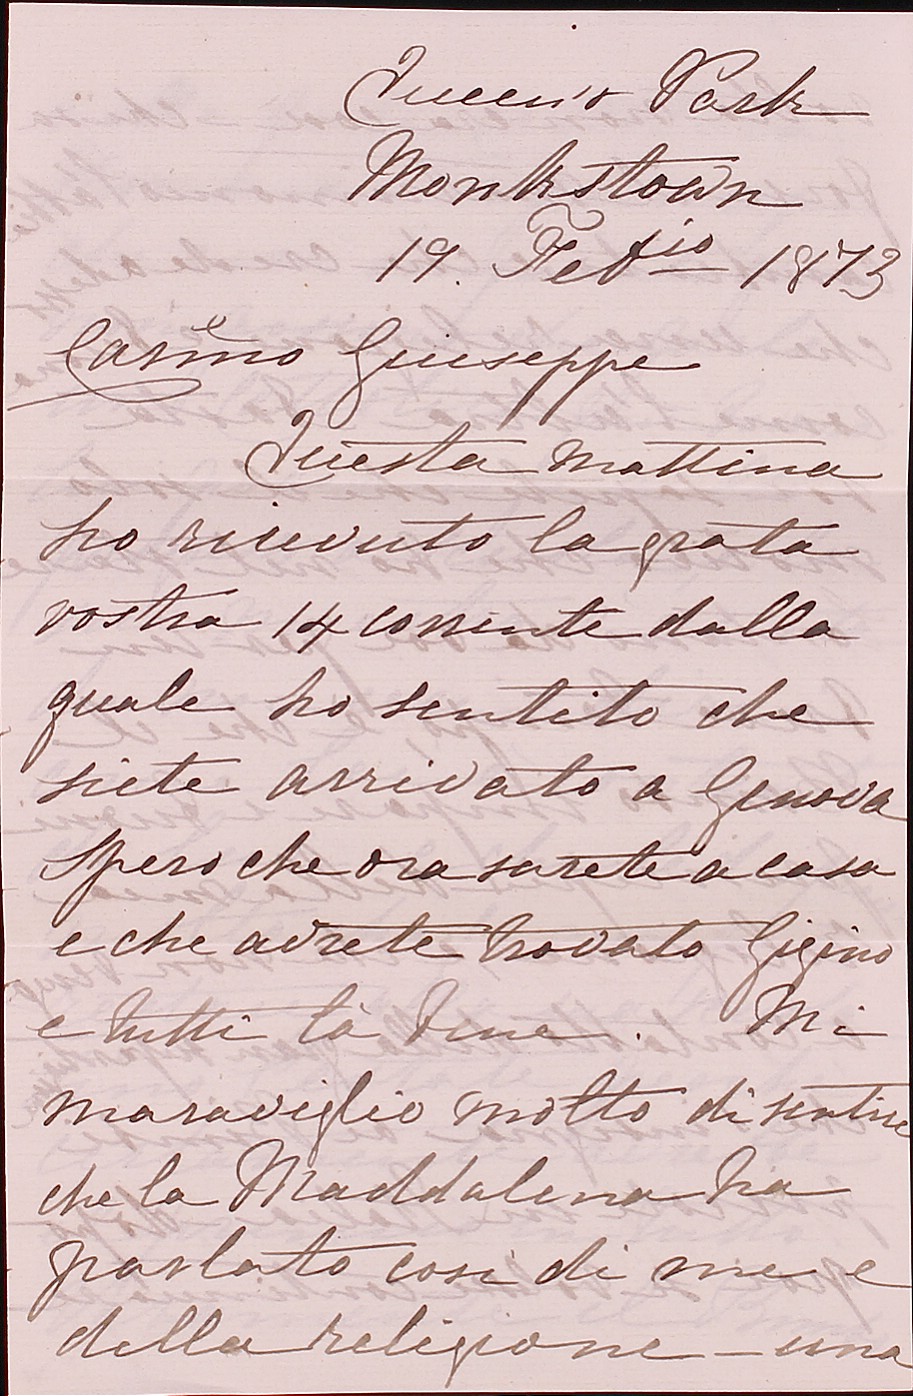 Queen's Park
Monkstown
19. Febio 1873
Carmo Giuseppe
Questa mattina
ho ricevuto la grata
vostra 14 corrente dalla
quale ho sentito che
siete arrivato a Genova
Spero che ora sarete a casa
e che avrete trovato Gigino
e tutti là bene. Mi
maraviglio molto di sentire
che la Maddalena ha
parlato così di me e
della religione – una